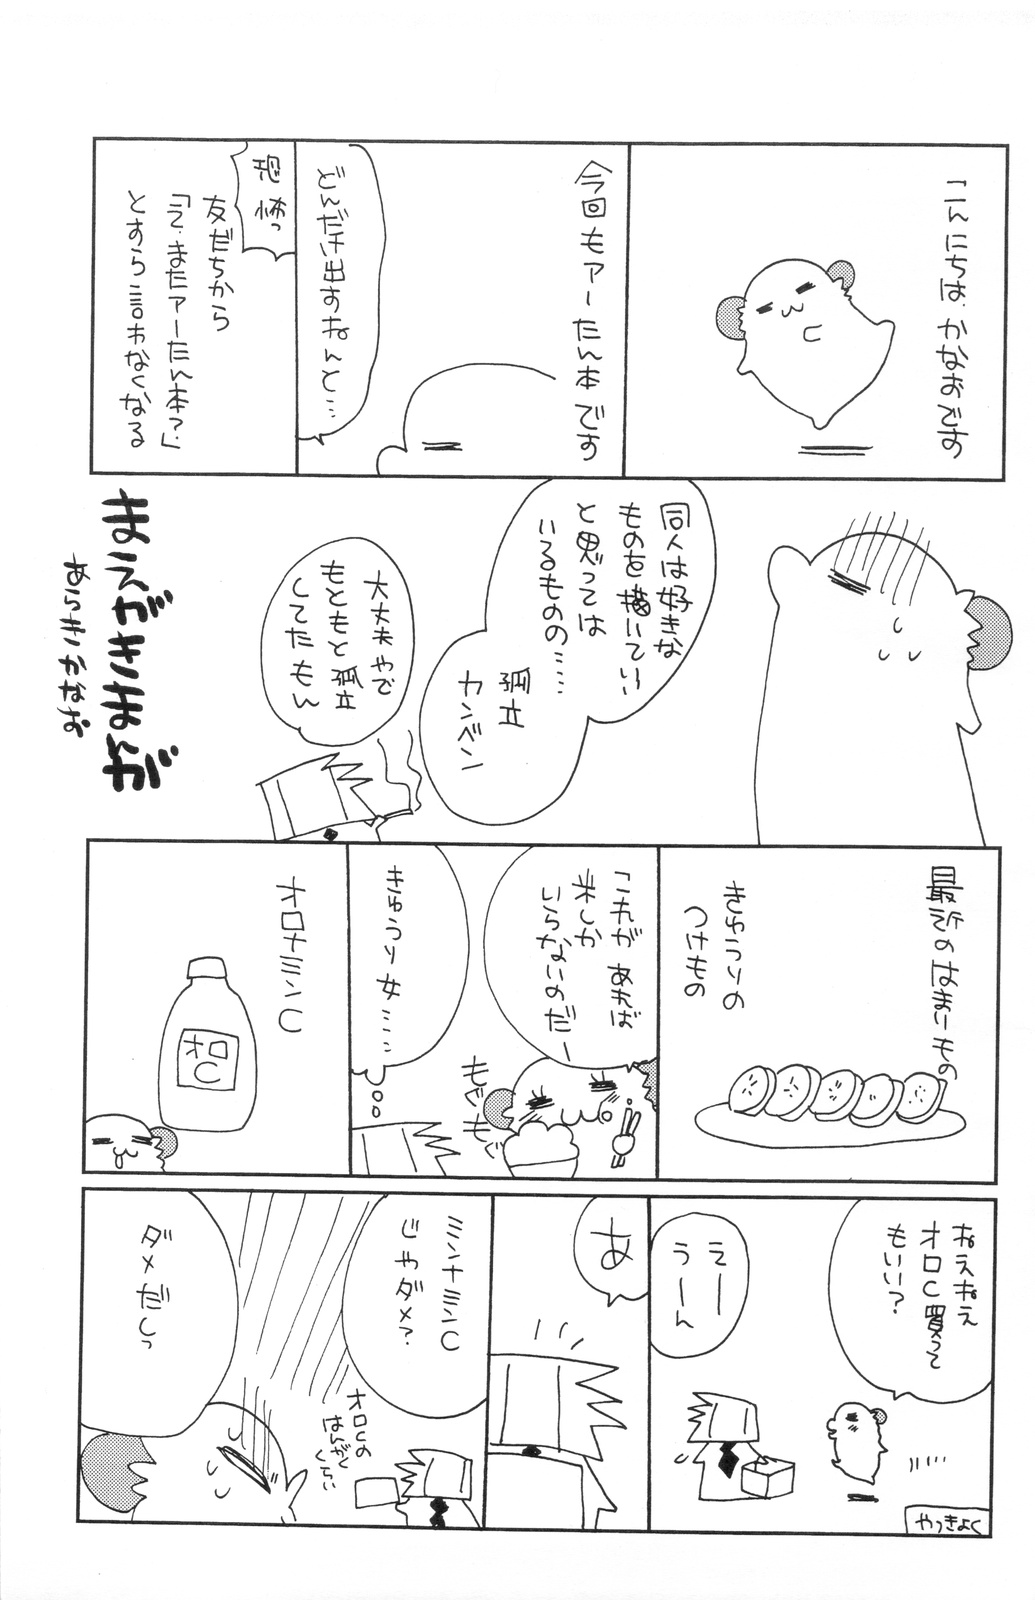 こんにちは、かなおです
今回もアーたん本です
どんだけ出すねんと…
恐怖っ
友だちから
「え、またアーたん本？」
とすら言わなくなる
同人は好きな
ものを描いていい
と思っては
いるものの……
孤立
カンベン
大丈夫やで
もともと孤立
してたもん
まえがきまんが
あらきかなお
最近のはまりもの
きゅうりの
つけもの
「これが あれば
米しか
いらないのだー
もぐもぐ
きゅうり女……
オロナミンC
オロC
ねえねえ
オロC買って
もいい？
えー
うーん
やっきょく
あ
ミンナミンC
じゃダメ？
オロCの
はんがくしい
ダメだしっ